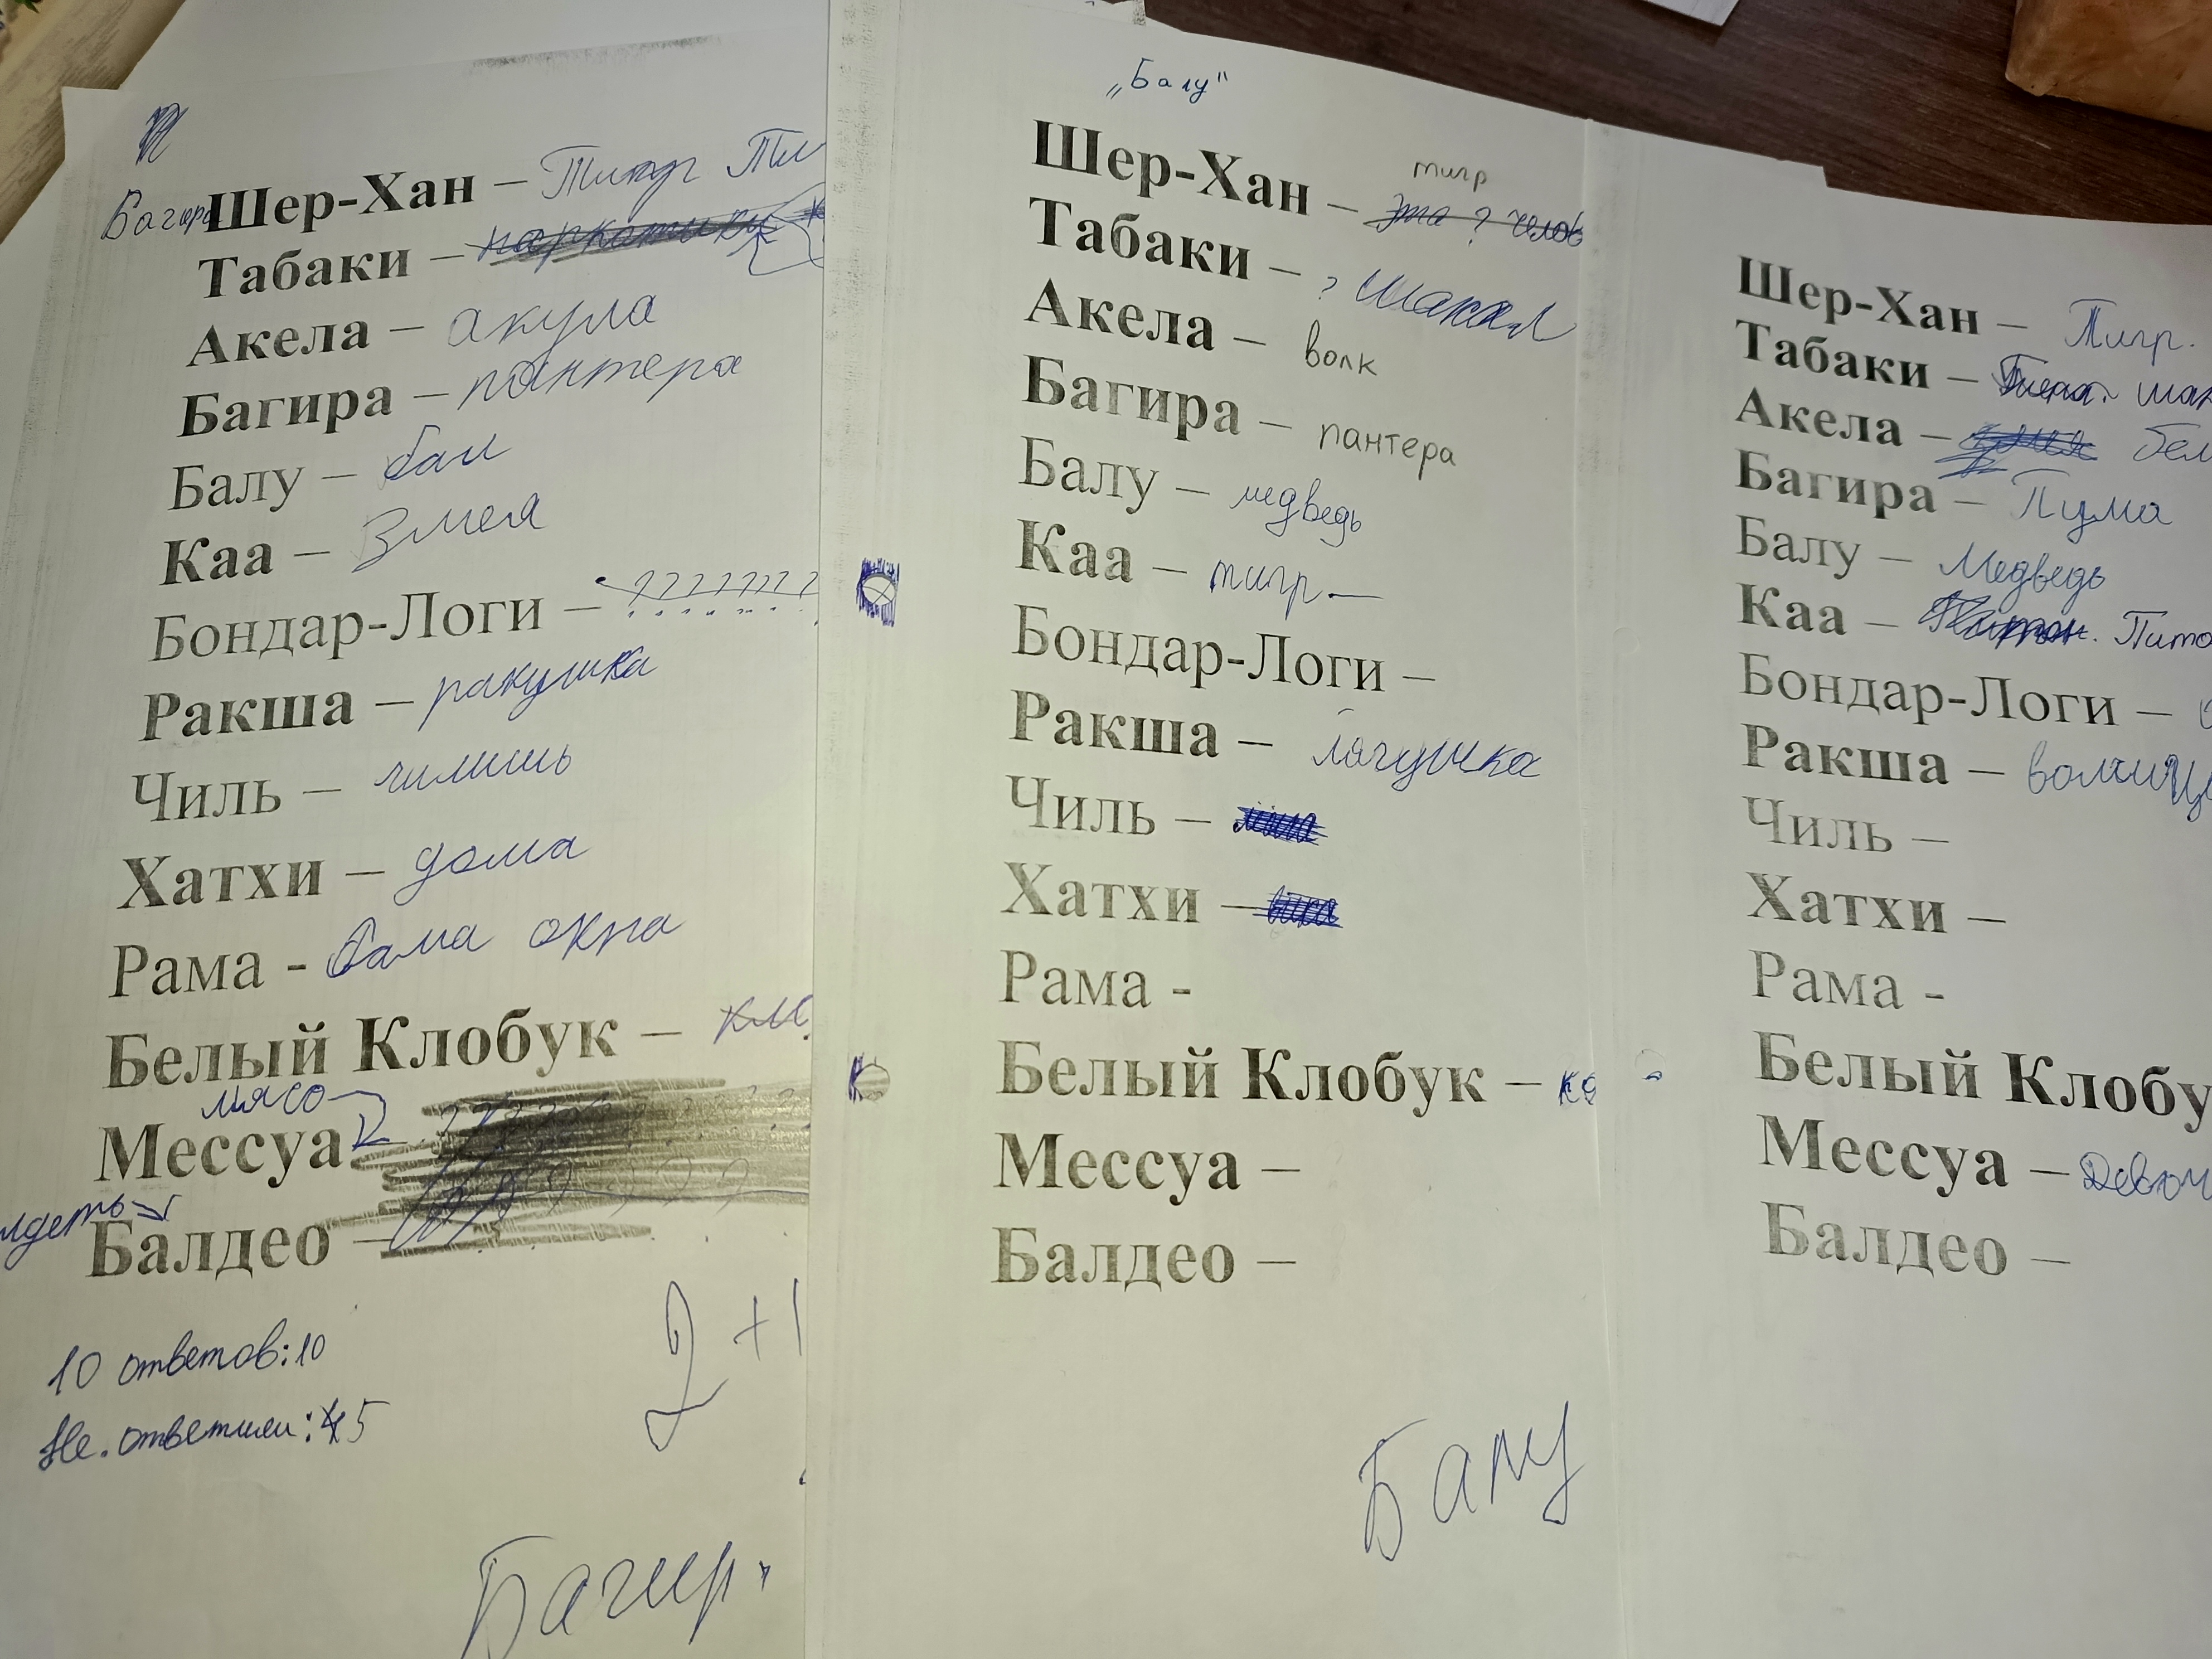 Багира
Шер-Хан – Тигр
Табаки – наркотики
Акела – акула
Багира – пантера
Балу – бал
Каа – Змея
Бондар-Логи – ???????
Ракша – ракушка
Чиль – чилишь
Хатхи – дома
Рама - бама окна
Белый Клобук –
мясо
Мессуа
Балдео –
10 ответов: 10
Не. ответили: 5
2 +1
Багир.
„Балу"
тигр
Шер-Хан – это ? челов
Табаки – ? шакал
Акела – волк
Багира – пантера
Балу – медведь
Каа – тигр –
Бондар-Логи –
Ракша – лягушка
Чиль –
Хатхи –
Рама -
Белый Клобук – ко
Мессуа –
Балдео –
Балу
Шер-Хан – Тигр.
Табаки – шак
Акела – бел
Багира – Пума
Балу – Медведь
Каа – Питон. Пито
Бондар-Логи –
Ракша – волчиц
Чиль –
Хатхи –
Рама -
Белый Клобу
Мессуа – Девоч
Балдео –